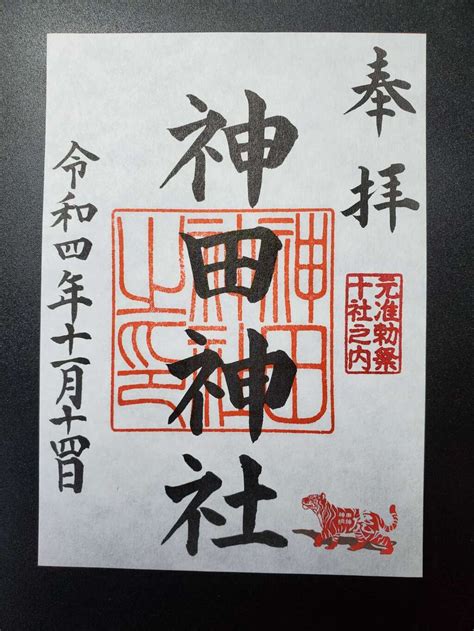 奉拝
元准勅祭
十社之内
神田神社
神田
神社
之印
令和四年十一月十四日